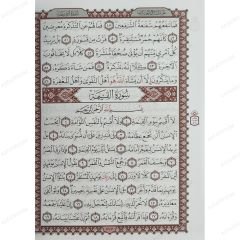 فَمَا تَنفَعُهُمْ شَفَٰعَةُ ٱلشَّٰفِعِينَ ٤٨ فَمَا لَهُمْ عَنِ ٱلتَّذْكِرَةِ مُعْرِضِينَ ٤٩
كَأَنَّهُمْ حُمُرٌ مُّسْتَنفِرَةٌ ٥٠ فَرَّتْ مِن قَسْوَرَةٍ ٥١ بَلْ يُرِيدُ كُلُّ
ٱمْرِئٍ مِّنْهُمْ أَن يُؤْتَىٰ صُحُفًا مُّنَشَّرَةً ٥٢ كَلَّا بَل لَّا يَخَافُونَ
ٱلْءَاخِرَةَ ٥٣ كَلَّآ إِنَّهُۥ تَذْكِرَةٌ ٥٤ فَمَن شَآءَ ذَكَرَهُۥ ٥٥
وَمَا يَذْكُرُونَ إِلَّآ أَن يَشَآءَ ٱللَّهُ هُوَ أَهْلُ ٱلتَّقْوَىٰ وَأَهْلُ ٱلْمَغْفِرَةِ ٥٦
سُورَةُ القِيَامَةِ
بِسْمِ ٱللَّهِ ٱلرَّحْمَٰنِ ٱلرَّحِيمِ
لَآ أُقْسِمُ بِيَوْمِ ٱلْقِيَٰمَةِ ١ وَلَآ أُقْسِمُ بِٱلنَّفْسِ ٱللَّوَّامَةِ ٢ أَيَحْسَبُ
ٱلْإِنسَٰنُ أَلَّن نَّجْمَعَ عِظَامَهُۥ ٣ بَلَىٰ قَٰدِرِينَ عَلَىٰٓ أَن نُّسَوِّيَ بَنَانَهُۥ ٤
بَلْ يُرِيدُ ٱلْإِنسَٰنُ لِيَفْجُرَ أَمَامَهُۥ ٥ يَسْـَٔلُ أَيَّانَ يَوْمُ ٱلْقِيَٰمَةِ ٦ فَإِذَا بَرِقَ
ٱلْبَصَرُ ٧ وَخَسَفَ ٱلْقَمَرُ ٨ وَجُمِعَ ٱلشَّمْسُ وَٱلْقَمَرُ ٩ يَقُولُ ٱلْإِنسَٰنُ
يَوْمَئِذٍ أَيْنَ ٱلْمَفَرُّ ١٠ كَلَّا لَا وَزَرَ ١١ إِلَىٰ رَبِّكَ يَوْمَئِذٍ ٱلْمُسْتَقَرُّ ١٢ يُنَبَّؤُا۟
ٱلْإِنسَٰنُ يَوْمَئِذٍۭ بِمَا قَدَّمَ وَأَخَّرَ ١٣ بَلِ ٱلْإِنسَٰنُ عَلَىٰ نَفْسِهِۦ بَصِيرَةٌ ١٤
وَلَوْ أَلْقَىٰ مَعَاذِيرَهُۥ ١٥ لَا تُحَرِّكْ بِهِۦ لِسَانَكَ لِتَعْجَلَ بِهِۦٓ ١٦ إِنَّ
عَلَيْنَا جَمْعَهُۥ وَقُرْءَانَهُۥ ١٧ فَإِذَا قَرَأْنَٰهُ فَٱتَّبِعْ قُرْءَانَهُۥ ١٨ ثُمَّ إِنَّ عَلَيْنَا بَيَانَهُۥ ١٩